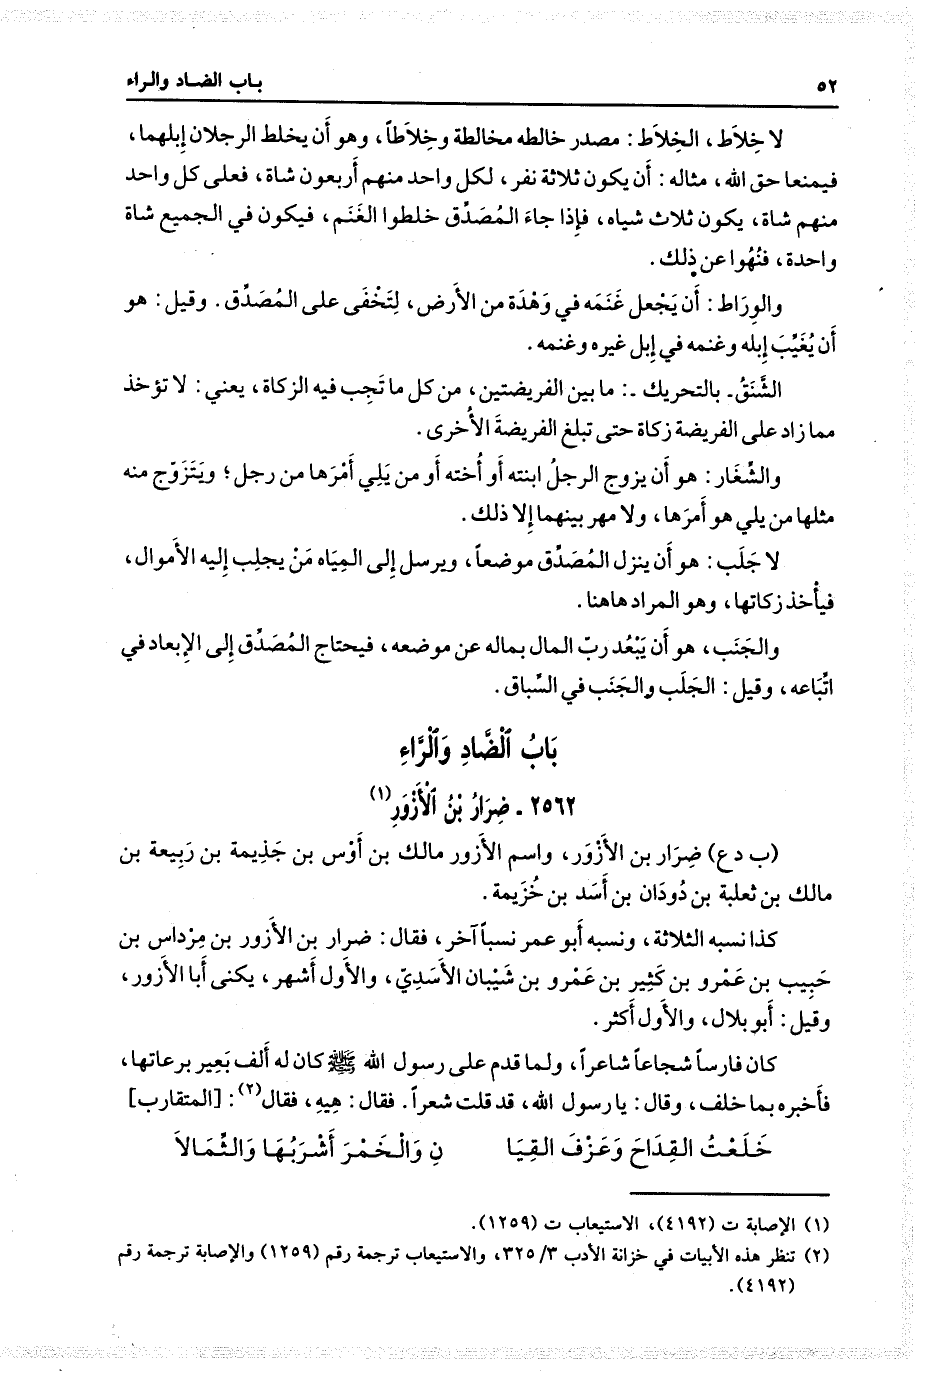 ٥٢
باب الضاد والراء
لا خِلاَط، الخِلاَط: مصدر خالطه مخالطة وخِلاَطاً، وهو أَن يخلط الرجلان إِبلهما،
فيمنعا حق الله، مثاله: أَن يكون ثلاثة نفر، لكل واحد منهم أَربعون شاة، فعلى كل واحد
منهم شاة، يكون ثلاث شياه، فإِذا جاءَ المُصَدِّق خلطوا الغَنَم، فيكون في الجميع شاة
واحدة، فنُهُوا عن ذٖلك.
والوِرَاط: أَن يَجْعل غَنَمَه في وَهْدَة من الأَرض، لِتَخْفَى على المُصَدِّق. وقيل: هو
أَن يُغَيِّبَ إِبله وغنمه في إِبل غيره وغنمه.
الشَّنَقُ ـ بالتحريك ـ: ما بين الفريضتين، من كل ما تَجِب فيه الزكاة، يعني: لا تؤخذ
مما زاد على الفريضة زكاة حتى تبلغ الفريضةَ الأُخرى.
والشِّغَار: هو أَن يزوج الرجلُ ابنته أَو أُخته أَو من يَلِي أَمْرَها من رجل؛ ويَتَزَوّج منه
مثلها من يلي هو أَمرَها، ولا مهر بينهما إِلا ذلك.
لا جَلَب: هو أَن ينزل المُصَدِّق موضعاً، ويرسل إِلى المِيَاه مَنْ يجلِب إِليه الأَموال،
فيأْخذ زكاتها، وهو المراد هاهنا.
والجَنَب، هو أَن يَبْعُد ربّ المال بماله عن موضعه، فيحتاج المُصَدِّق إِلى الإِبعاد في
اتِّبَاعه، وقيل: الجَلَب والجَنَب في السِّباق.
بَابُ ٱلْضَّادِ وَٱلْرَّاءِ
٢٥٦٢ ـ ضِرَارُ بْنُ ٱلْأَزْوَرِ(١)
(ب د ع) ضِرَار بن الأَزْوَر، واسم الأَزور مالك بن أَوْس بن جَذِيمة بن رَبِيعة بن
مالك بن ثعلبة بن دُودَان بن أَسَد بن خُزَيمة.
كذا نسبه الثلاثة، ونسبه أَبو عمر نسباً آخر، فقال: ضرار بن الأَزور بن مِرْداس بن
حَبِيب بن عَمْرو بن كَثِير بن عَمْرو بن شَيْبان الأَسَدِيّ، والأَول أَشهر، يكنى أَبا الأَزور،
وقيل: أَبو بلال، والأَول أَكثر.
كان فارساً شجاعاً شاعراً، ولما قدم على رسول الله ﷺ كان له أَلف بَعِير برعاتها،
فأَخبره بما خلف، وقال: يا رسول الله، قد قلت شعراً. فقال: هِيهِ، فقال(٢): [المتقارب]
خَلَعْتُ القِدَاحَ وَعَزْفَ القِيَا نِ وَالْخَمْرَ أَشْرَبُهَا وَالثِّمَالاَ
(١) الإصابة ت (٤١٩٢)، الاستيعاب ت (١٢٥٩).
(٢) تنظر هذه الأبيات في خزانة الأدب ٣/ ٣٢٥، والاستيعاب ترجمة رقم (١٢٥٩) والإصابة ترجمة رقم
(٤١٩٢).